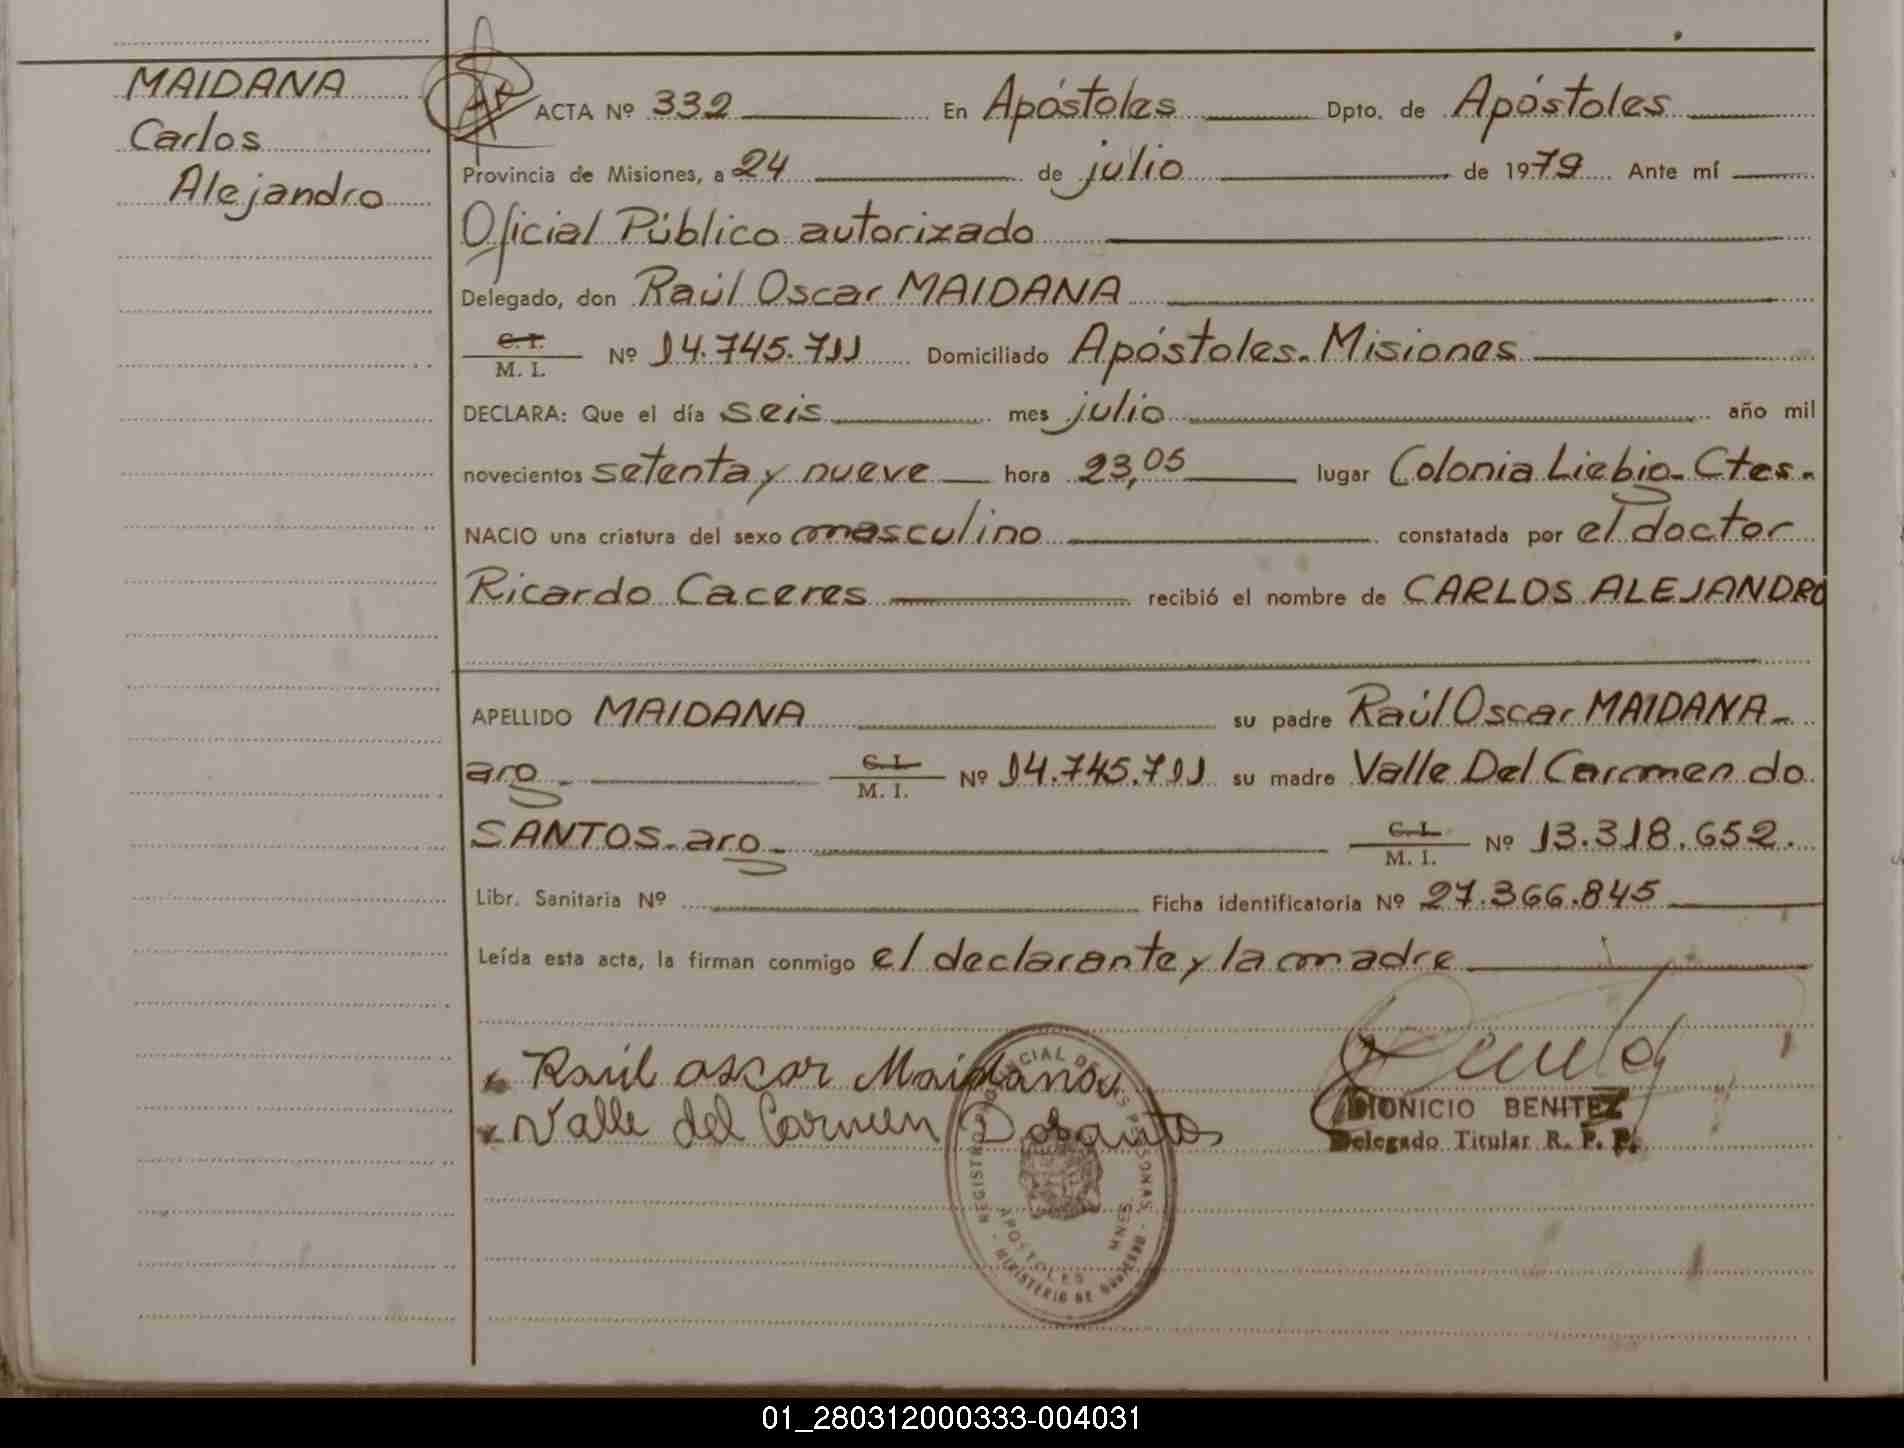 MAIDANA
Carlos
Alejandro
ACTA Nº 332 En Apóstoles Dpto. de Apóstoles
Provincia de Misiones, a 24 de julio de 1979 Ante mí
Oficial Público autorizado
Delegado, don Raúl Oscar MAIDANA
C. I.
M. I. Nº 14.745.711 Domiciliado Apóstoles. Misiones
DECLARA: Que el día seis mes julio año mil
novecientos setenta y nueve hora 23,05 lugar Colonia Liebig- Ctes.
NACIO una criatura del sexo masculino constatada por el doctor
Ricardo Caceres recibió el nombre de CARLOS ALEJANDRO
APELLIDO MAIDANA su padre Raúl Oscar MAIDANA-
arg. C. I. M. I. Nº 14.745.711 su madre Valle Del Carmen do
SANTOS. arg. C. I. M. I. Nº 13.318.652.
Libr. Sanitaria Nº Ficha identificatoria Nº 27.366.845
Leída esta acta, la firman conmigo el declarante y la madre
Raúl oscar Maidana
Valle del Carmen Dosantos
DIONICIO BENITEZ
Delegado Titular R. P. P.
REGISTRO PROVINCIAL DE LAS PERSONAS
APOSTOLES MNES.
- MINISTERIO DE GOBIERNO -
01_280312000333-004031